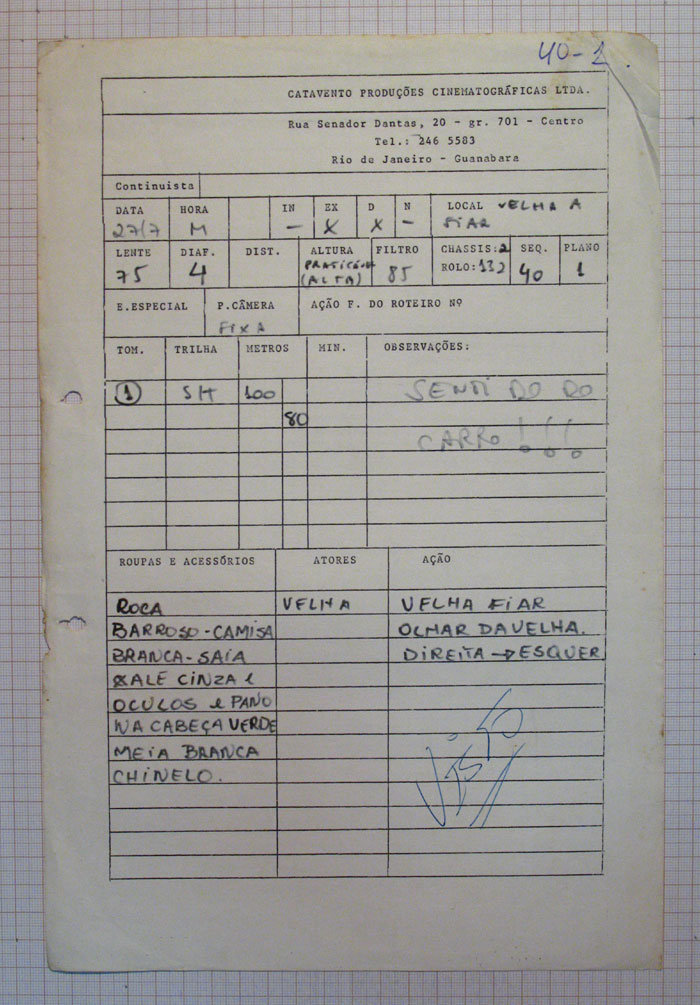 40-1
CATAVENTO PRODUÇÕES CINEMATOGRÁFICAS LTDA.
Rua Senador Dantas, 20 - gr. 701 - Centro
Tel.: 246 5583
Rio de Janeiro - Guanabara
Continuista
DATA HORA IN EX D N LOCAL VELHA A
27/7 M - X X - FIAR
LENTE DIAF. DIST. ALTURA FILTRO CHASSIS: 2 SEQ. PLANO
75 4 (ALTA) 85 ROLO: 132 40 1
E.ESPECIAL P.CÂMERA AÇÃO F. DO ROTEIRO Nº
FIXA
TOM. TRILHA METROS MIN. OBSERVAÇÕES:
1 S/T 100 SENTIDO DO
80
CARRO!!!
ROUPAS E ACESSÓRIOS ATORES AÇÃO
ROCA VELHA VELHA FIAR
BARROSO-CAMISA OLHAR DA VELHA.
BRANCA-SAIA DIREITA → ESQUER
XALE CINZA e
OCULOS e PANO
NA CABEÇA VERDE
MEIA BRANCA
CHINELO.
VISTO